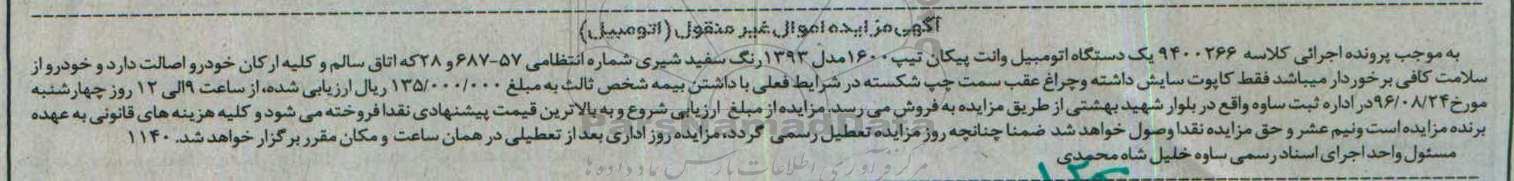 آگهی مزایده اموال غیر منقول (اتومبیل)
به موجب پرونده اجرائی کلاسه ۹۴۰۰۲۶۶ یک دستگاه اتومبیل وانت پیکان تیپ ۱۶۰۰ مدل ۱۳۹۳ رنگ سفید شیری شماره انتظامی ۵۷-۶۸۷و ۲۸ که اتاق سالم و کلیه ارکان خودرو اصالت دارد و خودرو از
سلامت کافی برخوردار میباشد فقط کاپوت سایش داشته وچراغ عقب سمت چپ شکسته در شرایط فعلی با داشتن بیمه شخص ثالث به مبلغ ۱۳۵/۰۰۰/۰۰۰ ریال ارزیابی شده، از ساعت ۹الی ۱۲ روز چهارشنبه
مورخ۹۶/۰۸/۲۴در اداره ثبت ساوه واقع در بلوار شهید بهشتی از طریق مزایده به فروش می رسد. مزایده از مبلغ ارزیابی شروع و به بالاترین قیمت پیشنهادی نقدا فروخته می شود و کلیه هزینه های قانونی به عهده
برنده مزایده است ونیم عشر و حق مزایده نقدا وصول خواهد شد ضمنا چنانچه روز مزایده تعطیل رسمی گردد، مزایده روز اداری بعد از تعطیلی در همان ساعت و مکان مقرر برگزار خواهد شد. ۱۱۴۰
مسئول واحد اجرای اسناد رسمی ساوه خلیل شاه محمدی